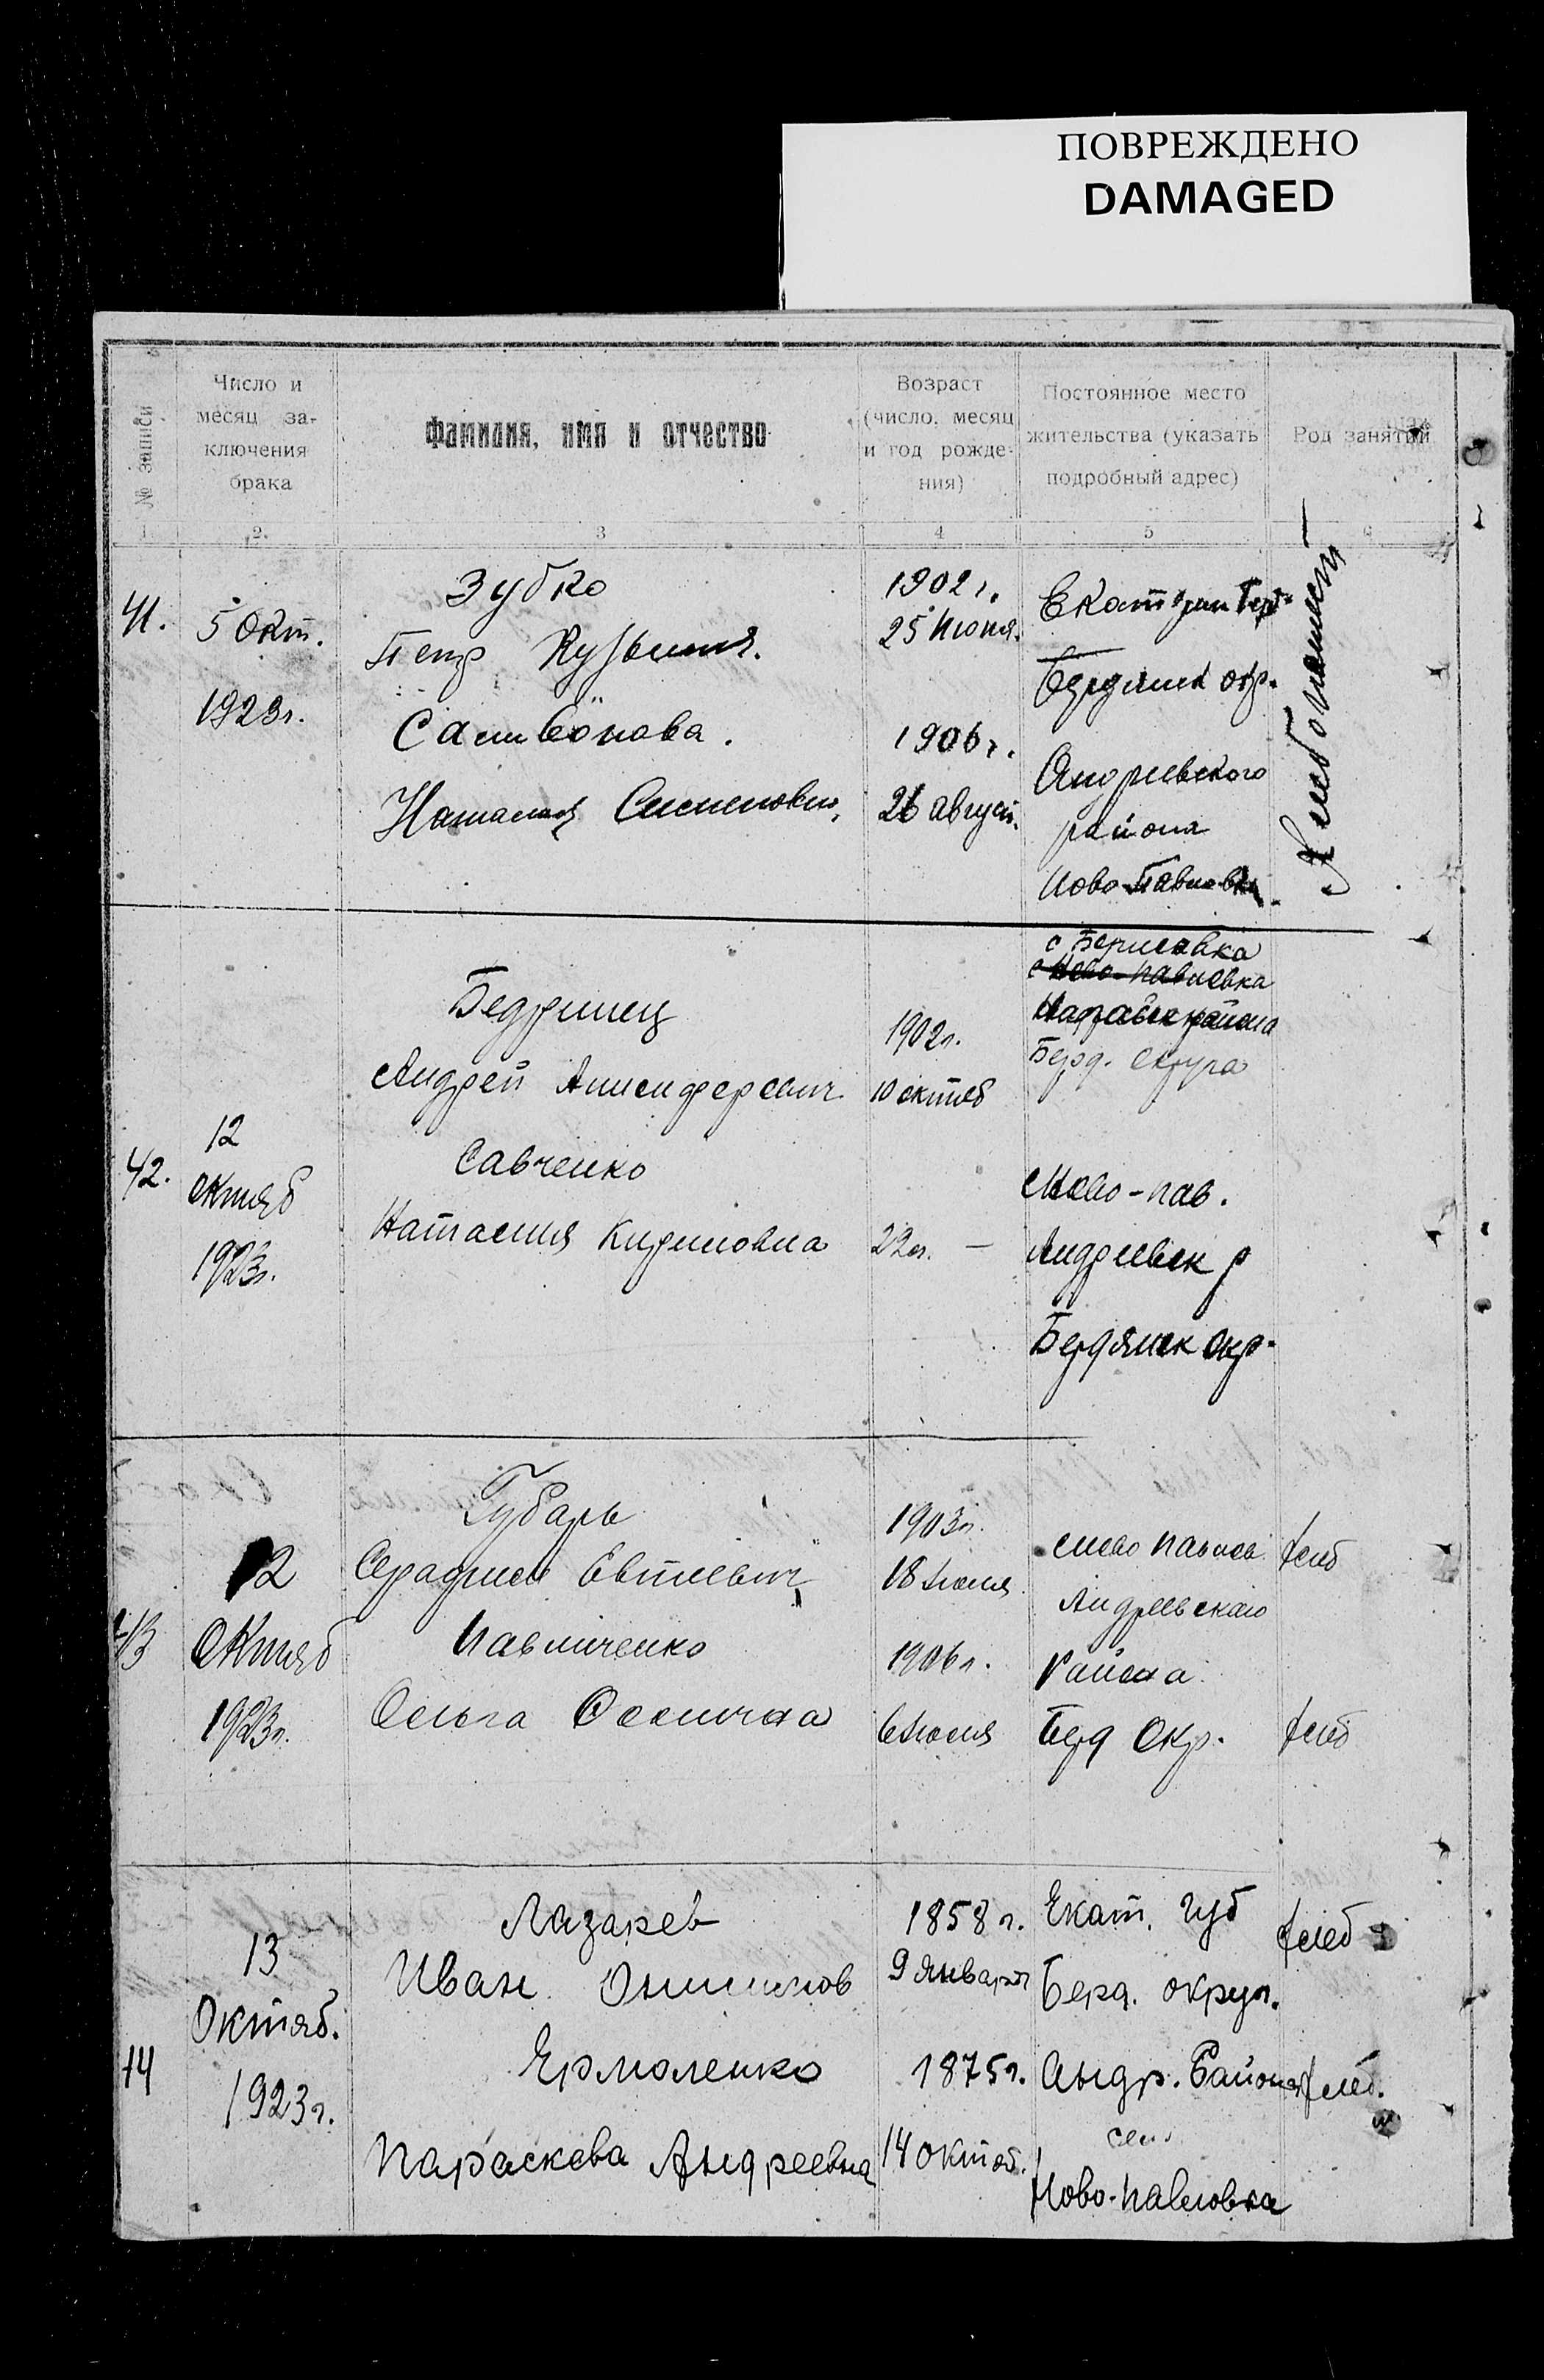 ПОВРЕЖДЕНО
DAMAGED
№ записи
Число и месяц за-ключения брака
Фамилия, имя и отчество
Возраст (число, месяц и год рожде-ния)
Постоянное место жительства (указать подробный адрес)
Род занятий
1 2. 3 4 5 6
41.
5 Окт.
1923г.
Зубко
Петр Кузьмич.
1902г.
25 Июня.
Самсонова.
Наталия
1906г.
26 август.
Бердянск окр.
Андреевского
района
Ново-Павловка
Хлебопашец
42.
12
октяб
1923г.
Бедринец
Андрей
Савченко
Наталия Кириловна
1902г.
10 октяб
22г. —
с Борисовка
с Ново-павловка
района
Берд. округа
Ново-пав.
Андреевск р
Бердянск окр.
43
12
Октяб
1923г.
Губарь
Серафим Евтиевич
Павличенко
Ольга Осиповна
1903г.
18 Июля
1906г.
6 Июля
Ново павлов.
Андреевского
Района
Берд Окр.
хлеб
хлеб
44
13
Октяб.
1923г.
Лазарев
Иван
Ермоленко
Параскева Андреевна
1858г.
9 Января
1875г.
14 Октяб.
Екат. Губ
Берд. округ.
Андр. Района
село
Ново-павловка
хлеб
хлеб.